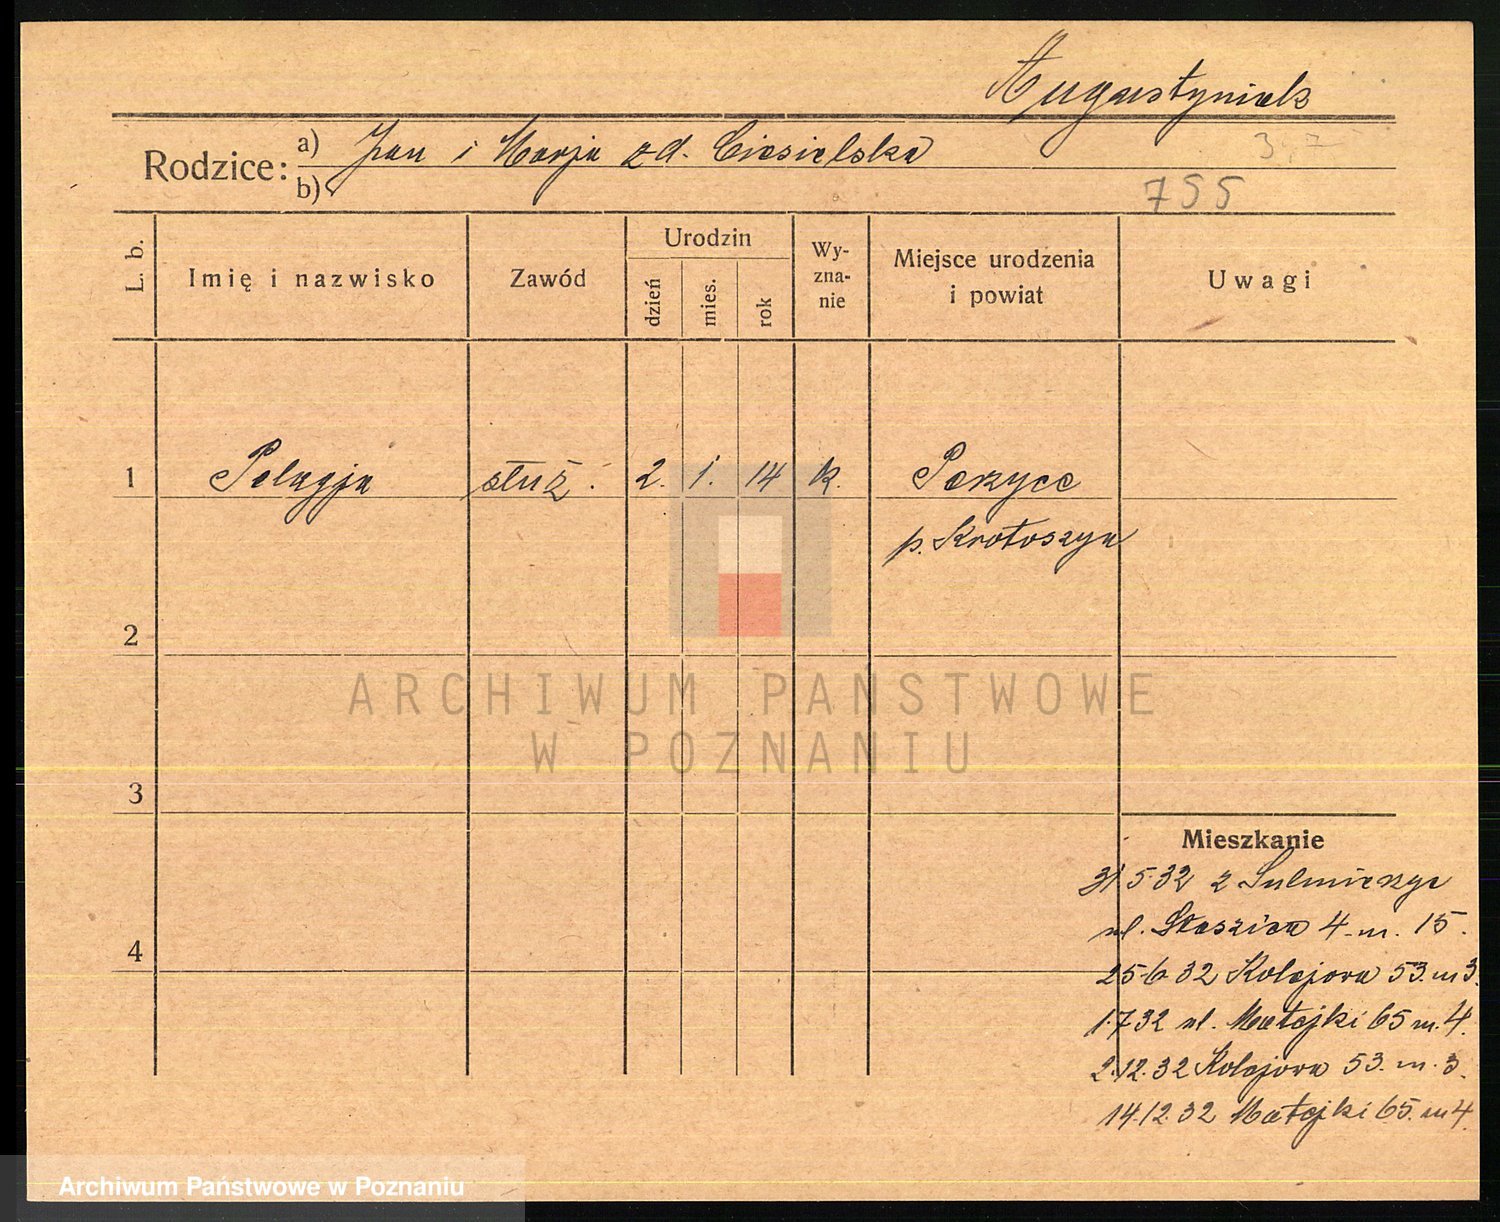 Augustyniak
Rodzice: a) Jan i Marja zd. Ciesielska
b)
755
L. b.
Imię i nazwisko
Zawód
Urodzin
dzień
mies.
rok
Wy-
zna-
nie
Miejsce urodzenia
i powiat
Uwagi
1 Pelagja służ. 2. 1. 14 k. Perzyce
p. Krotoszyn
2
3
4
Mieszkanie
31 5.32 z Sulmierzyc
ul. Staszica 4. m. 15.
25 6 32 Kolejowa 53. m 3.
1.7 32 ul. Matejki 65 m. 4.
2.12.32 Kolejowa 53. m. 3.
14.12.32 Matejki 65. m 4.
ARCHIWUM PAŃSTWOWE
W POZNANIU
Archiwum Państwowe w Poznaniu